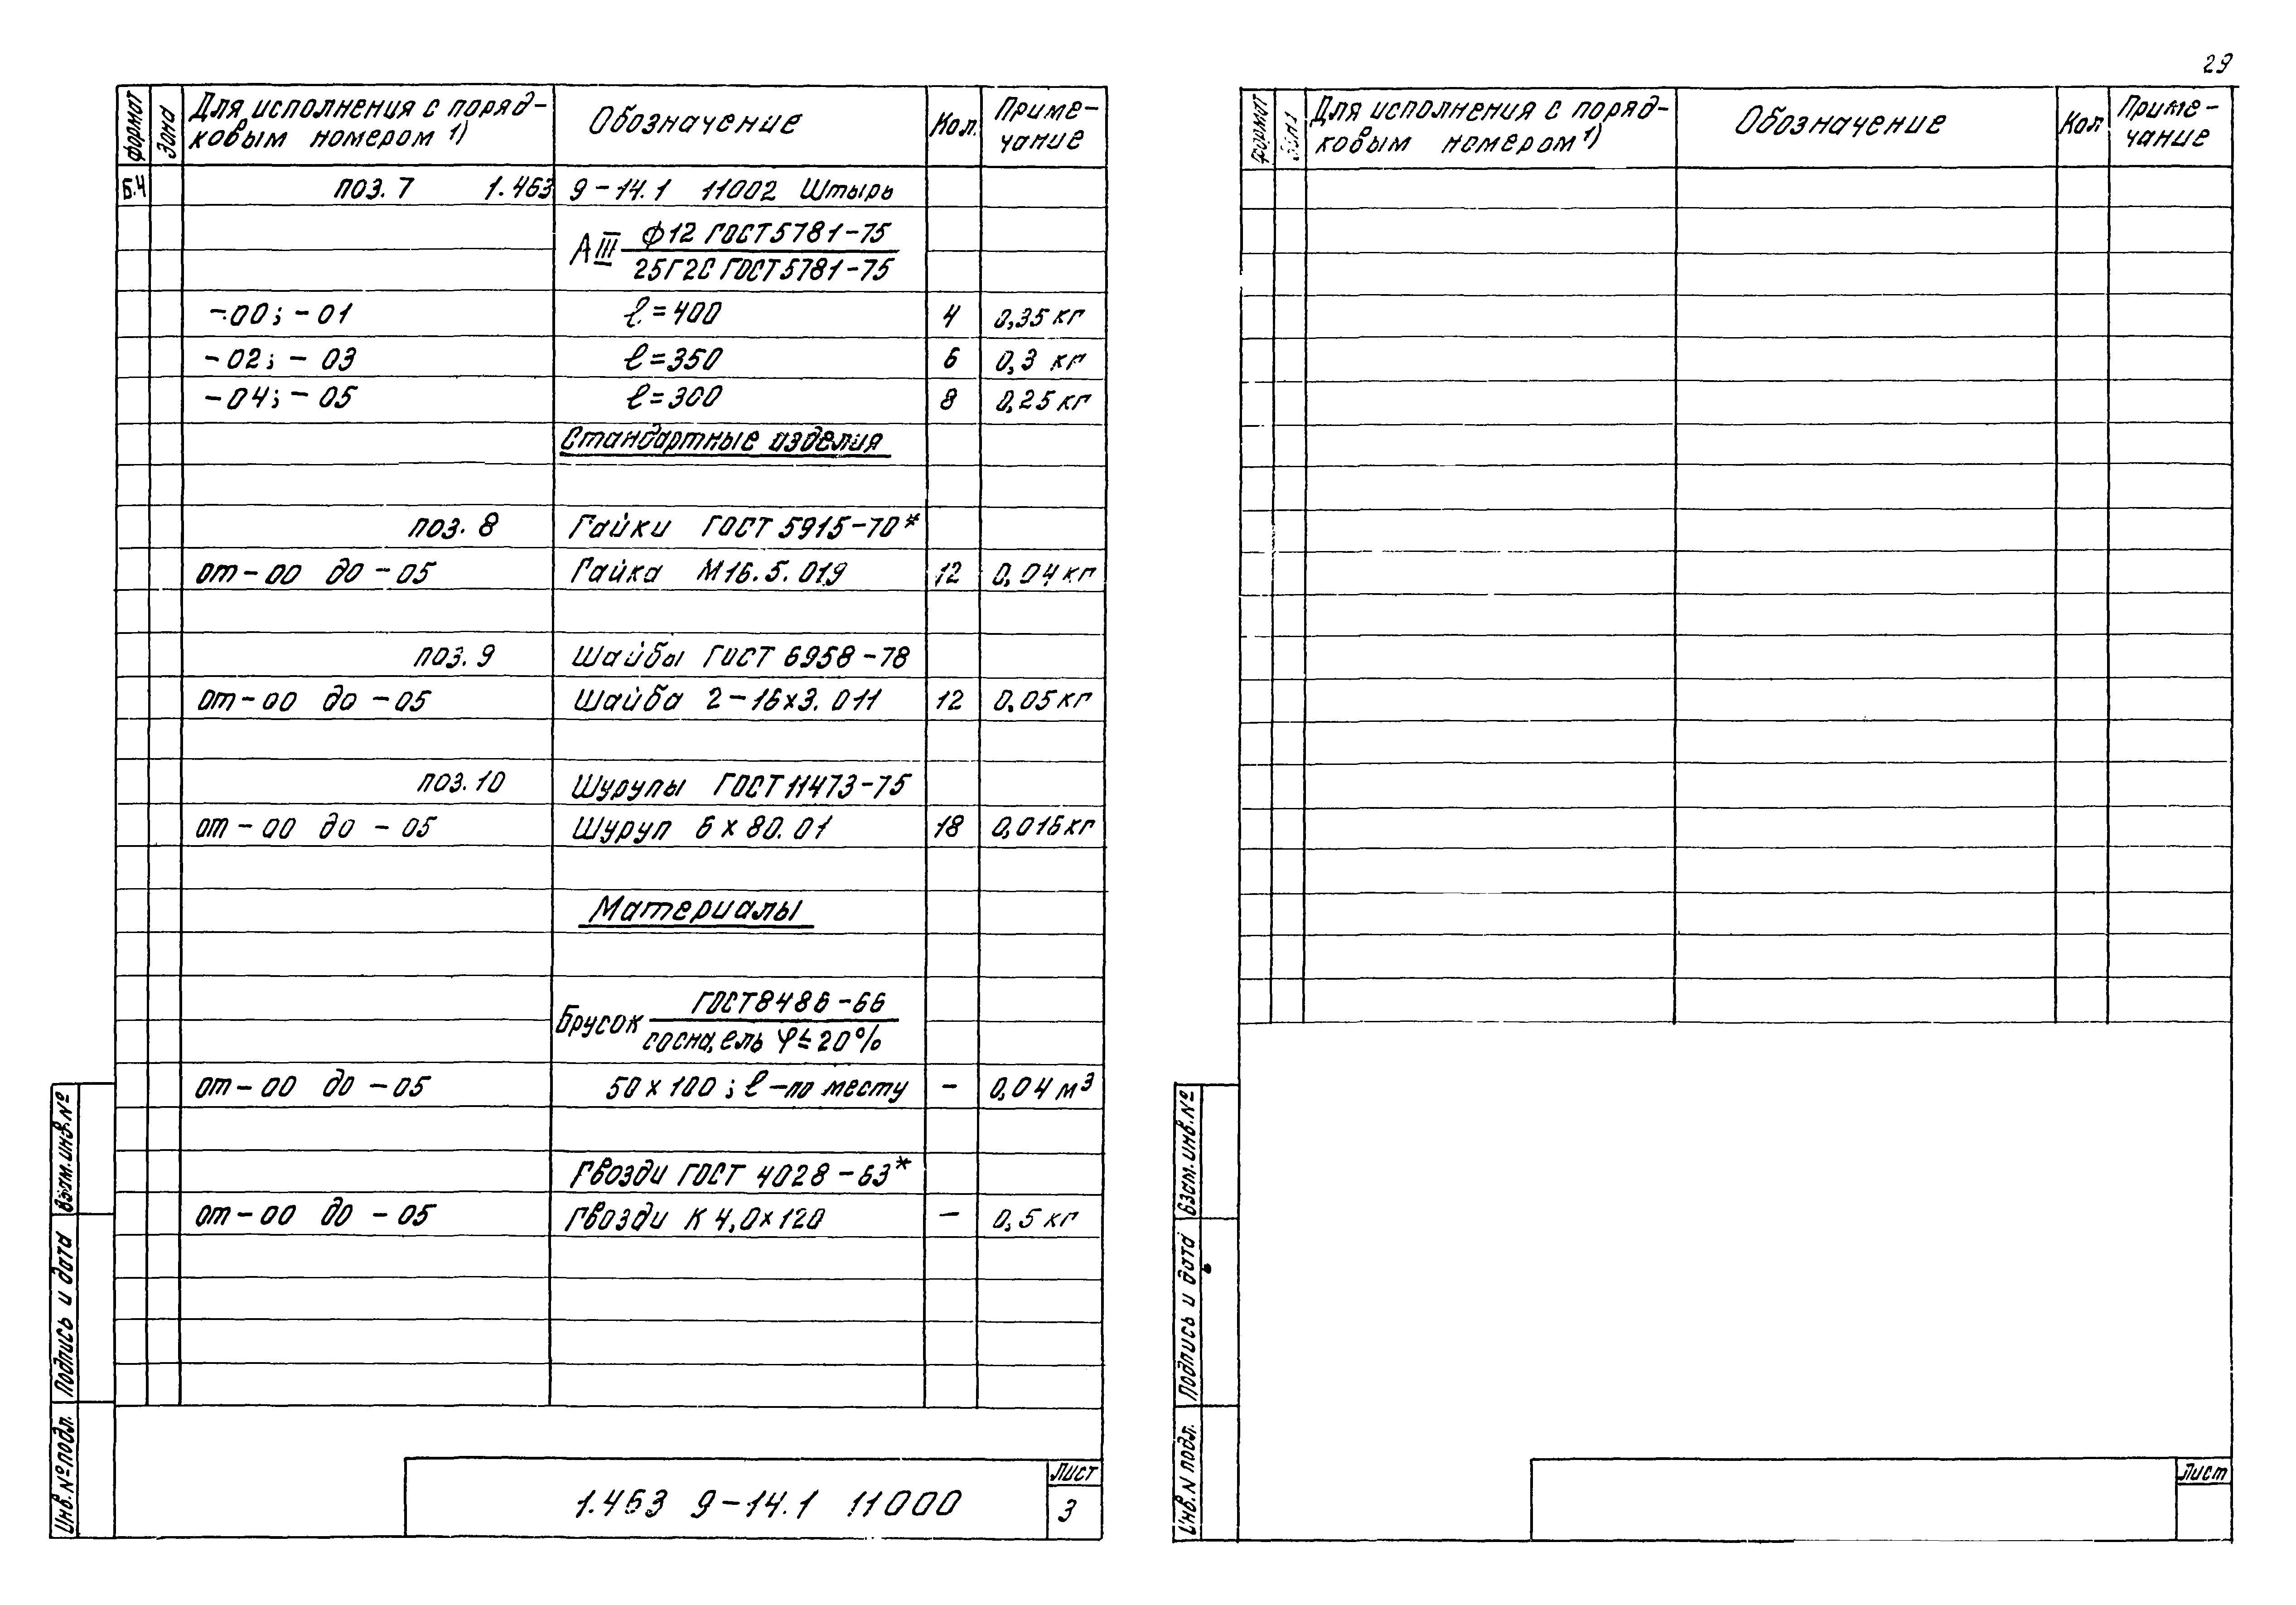 29
Формат
Зона
Для исполнения с поряд-
ковым номером 1)
Обозначение
Кол.
Приме-
чание
Б.Ч поз. 7 1.463 9-14.1 11002 Штырь
АIII ф12 ГОСТ5781-75
25Г2С ГОСТ5781-75
-00; -01 ℓ=400 4 0,35 кг
-02; -03 ℓ=350 6 0,3 кг
-04; -05 ℓ=300 8 0,25 кг
Стандартные изделия
поз. 8 Гайки ГОСТ 5915-70*
от-00 до -05 Гайка М16.5.019 12 0,04 кг
поз. 9 Шайбы ГОСТ 6958-78
от-00 до -05 Шайба 2-16х3.011 12 0,05 кг
поз. 10 Шурупы ГОСТ 11473-75
от-00 до -05 Шуруп 6х80.01 18 0,016 кг
Материалы
Брусок ГОСТ8486-66
сосна, ель φ≤20%
от-00 до -05 50х100; ℓ-по месту - 0,04 м³
Гвозди ГОСТ 4028-63*
от-00 до -05 гвозди К 4,0х120 - 0,5 кг
Взам. инв. №
Подпись и дата
Инв. № подл.
1.463 9-14.1 11000
Лист
3
Формат
Для исполнения с поряд-
ковым номером 1)
Обозначение
Кол
Приме-
чание
Взам. инв. №
Подпись и дата
Инв. N подл.
Лист